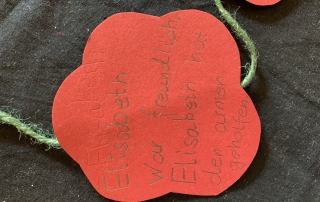 Elisabeth
Elisabeth
War freundlich
Elisabeth hat
den armen
geholfen